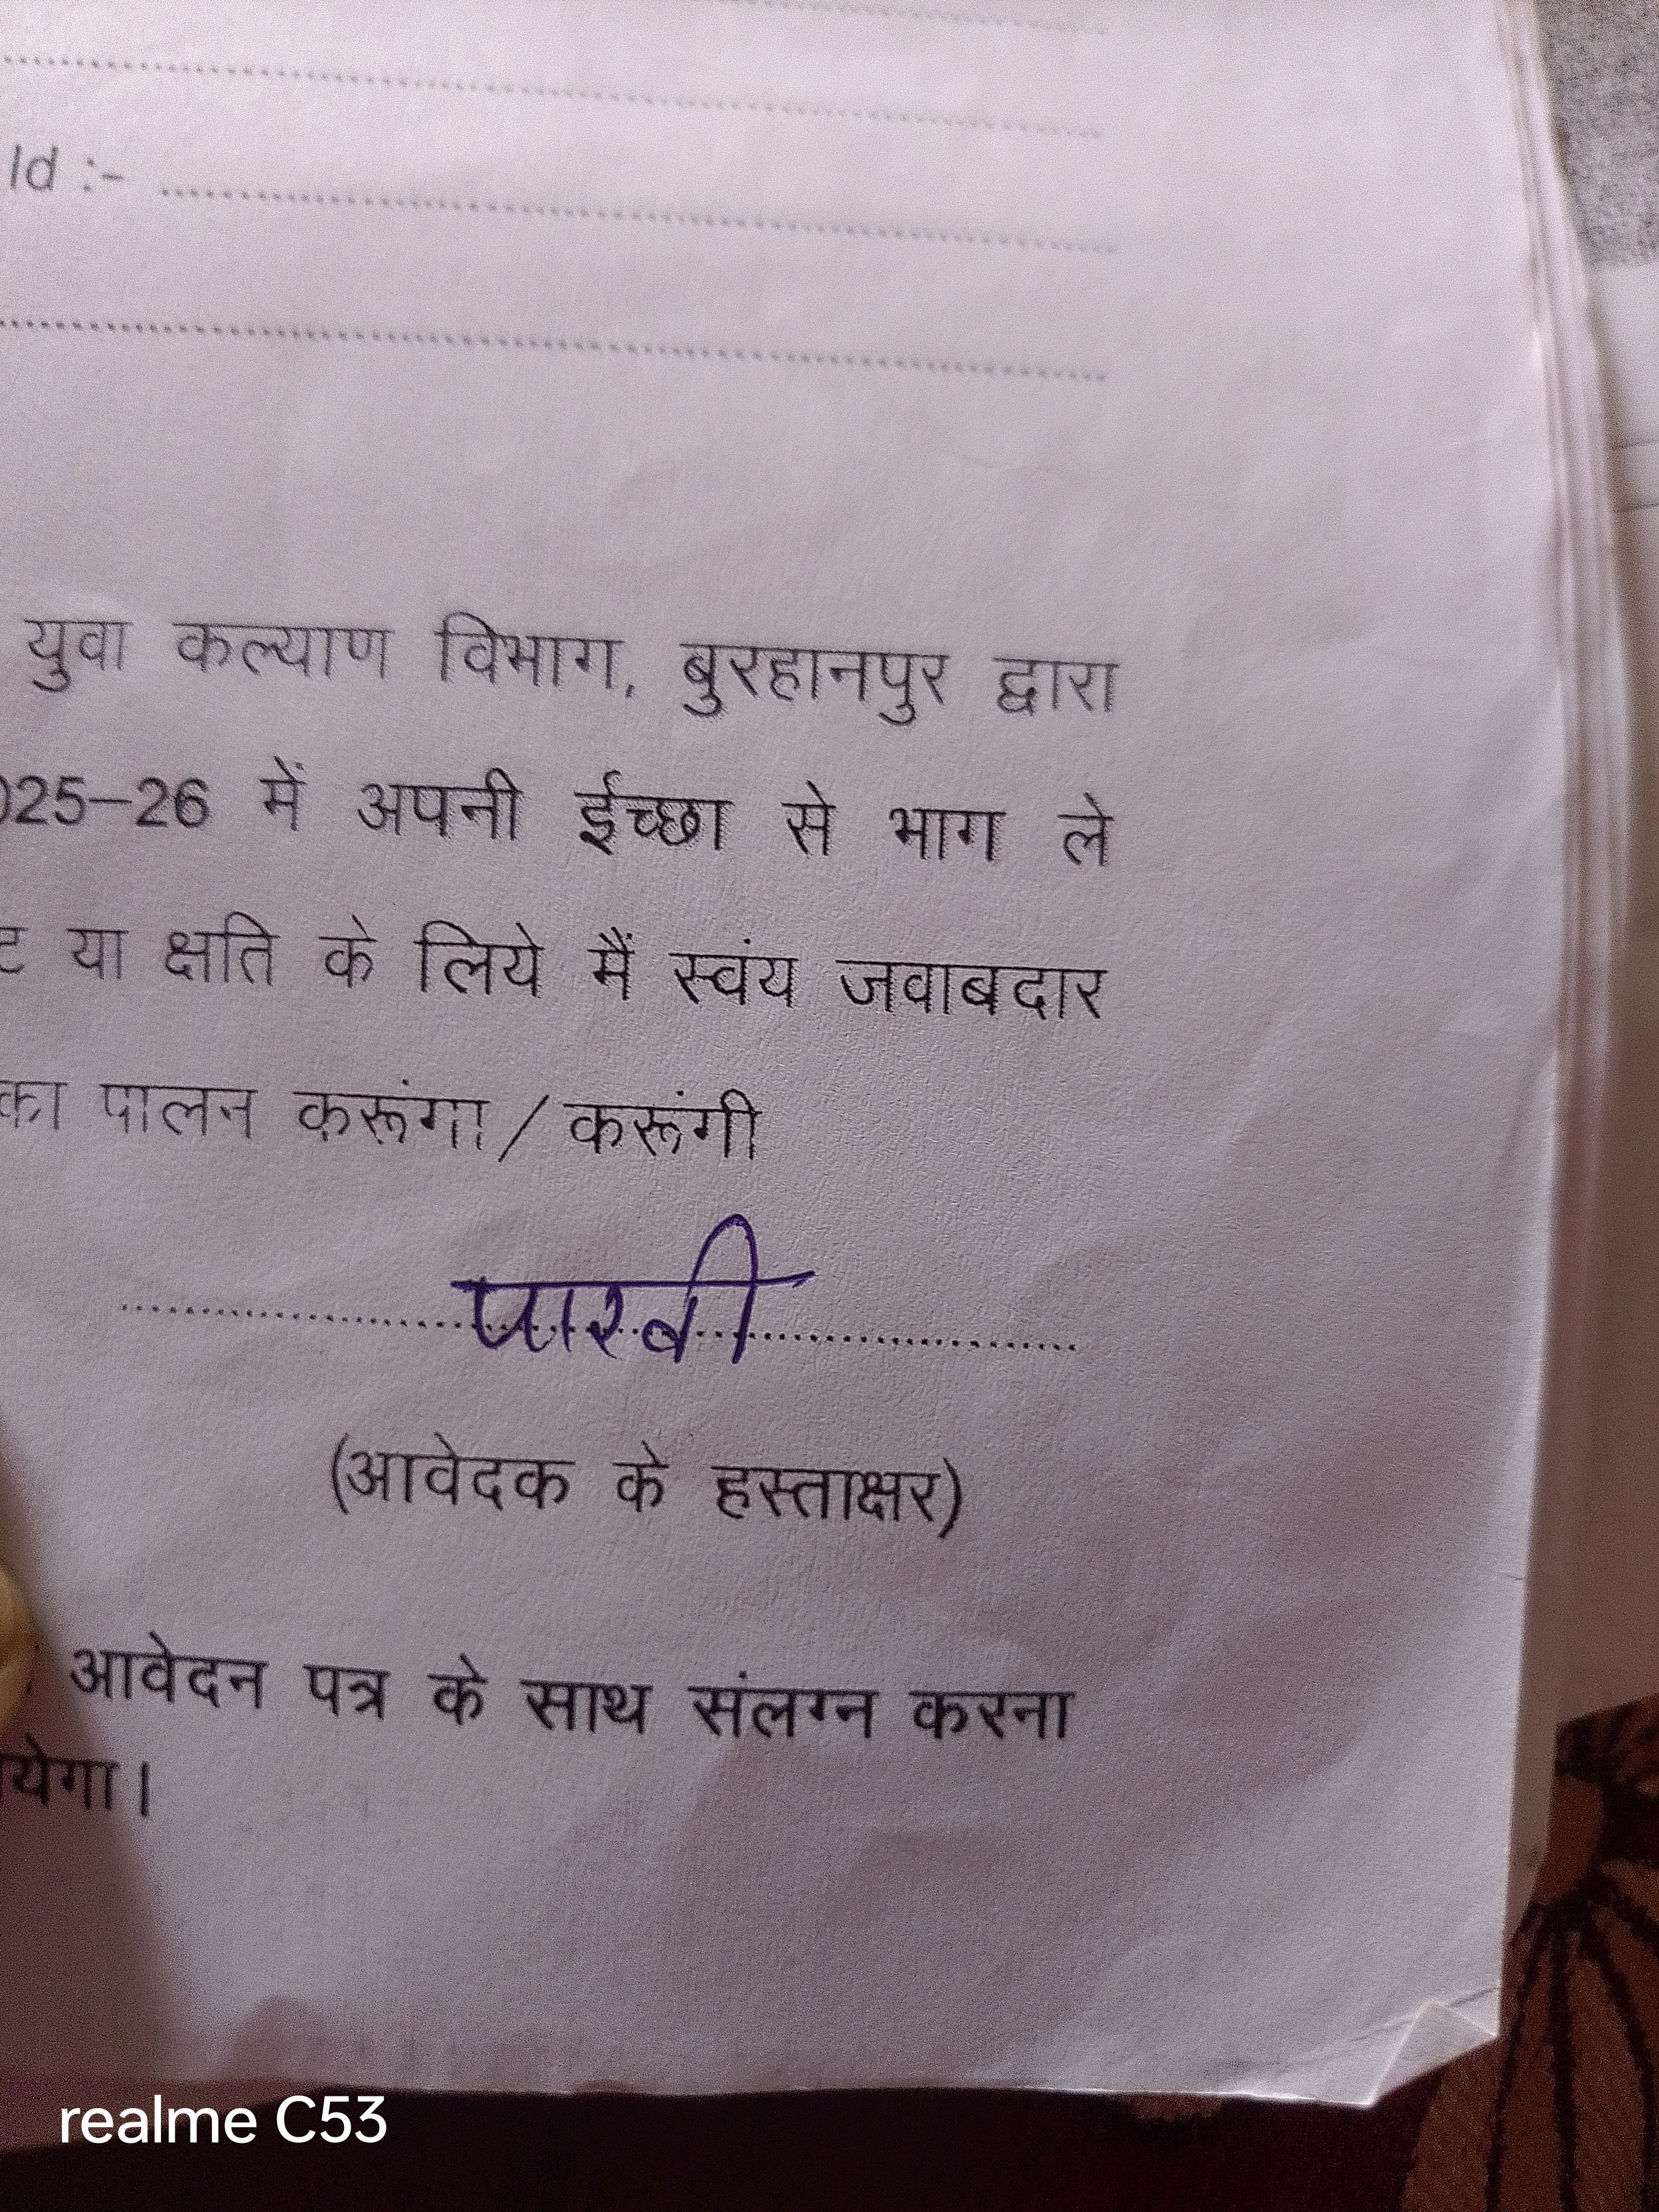 Id :- ........................................
युवा कल्याण विभाग, बुरहानपुर द्वारा
025-26 में अपनी ईच्छा से भाग ले
या क्षति के लिये मैं स्वंय जवाबदार
का पालन करूंगा/करूंगी
पारवी
(आवेदक के हस्ताक्षर)
आवेदन पत्र के साथ संलग्न करना
येगा।
realme C53